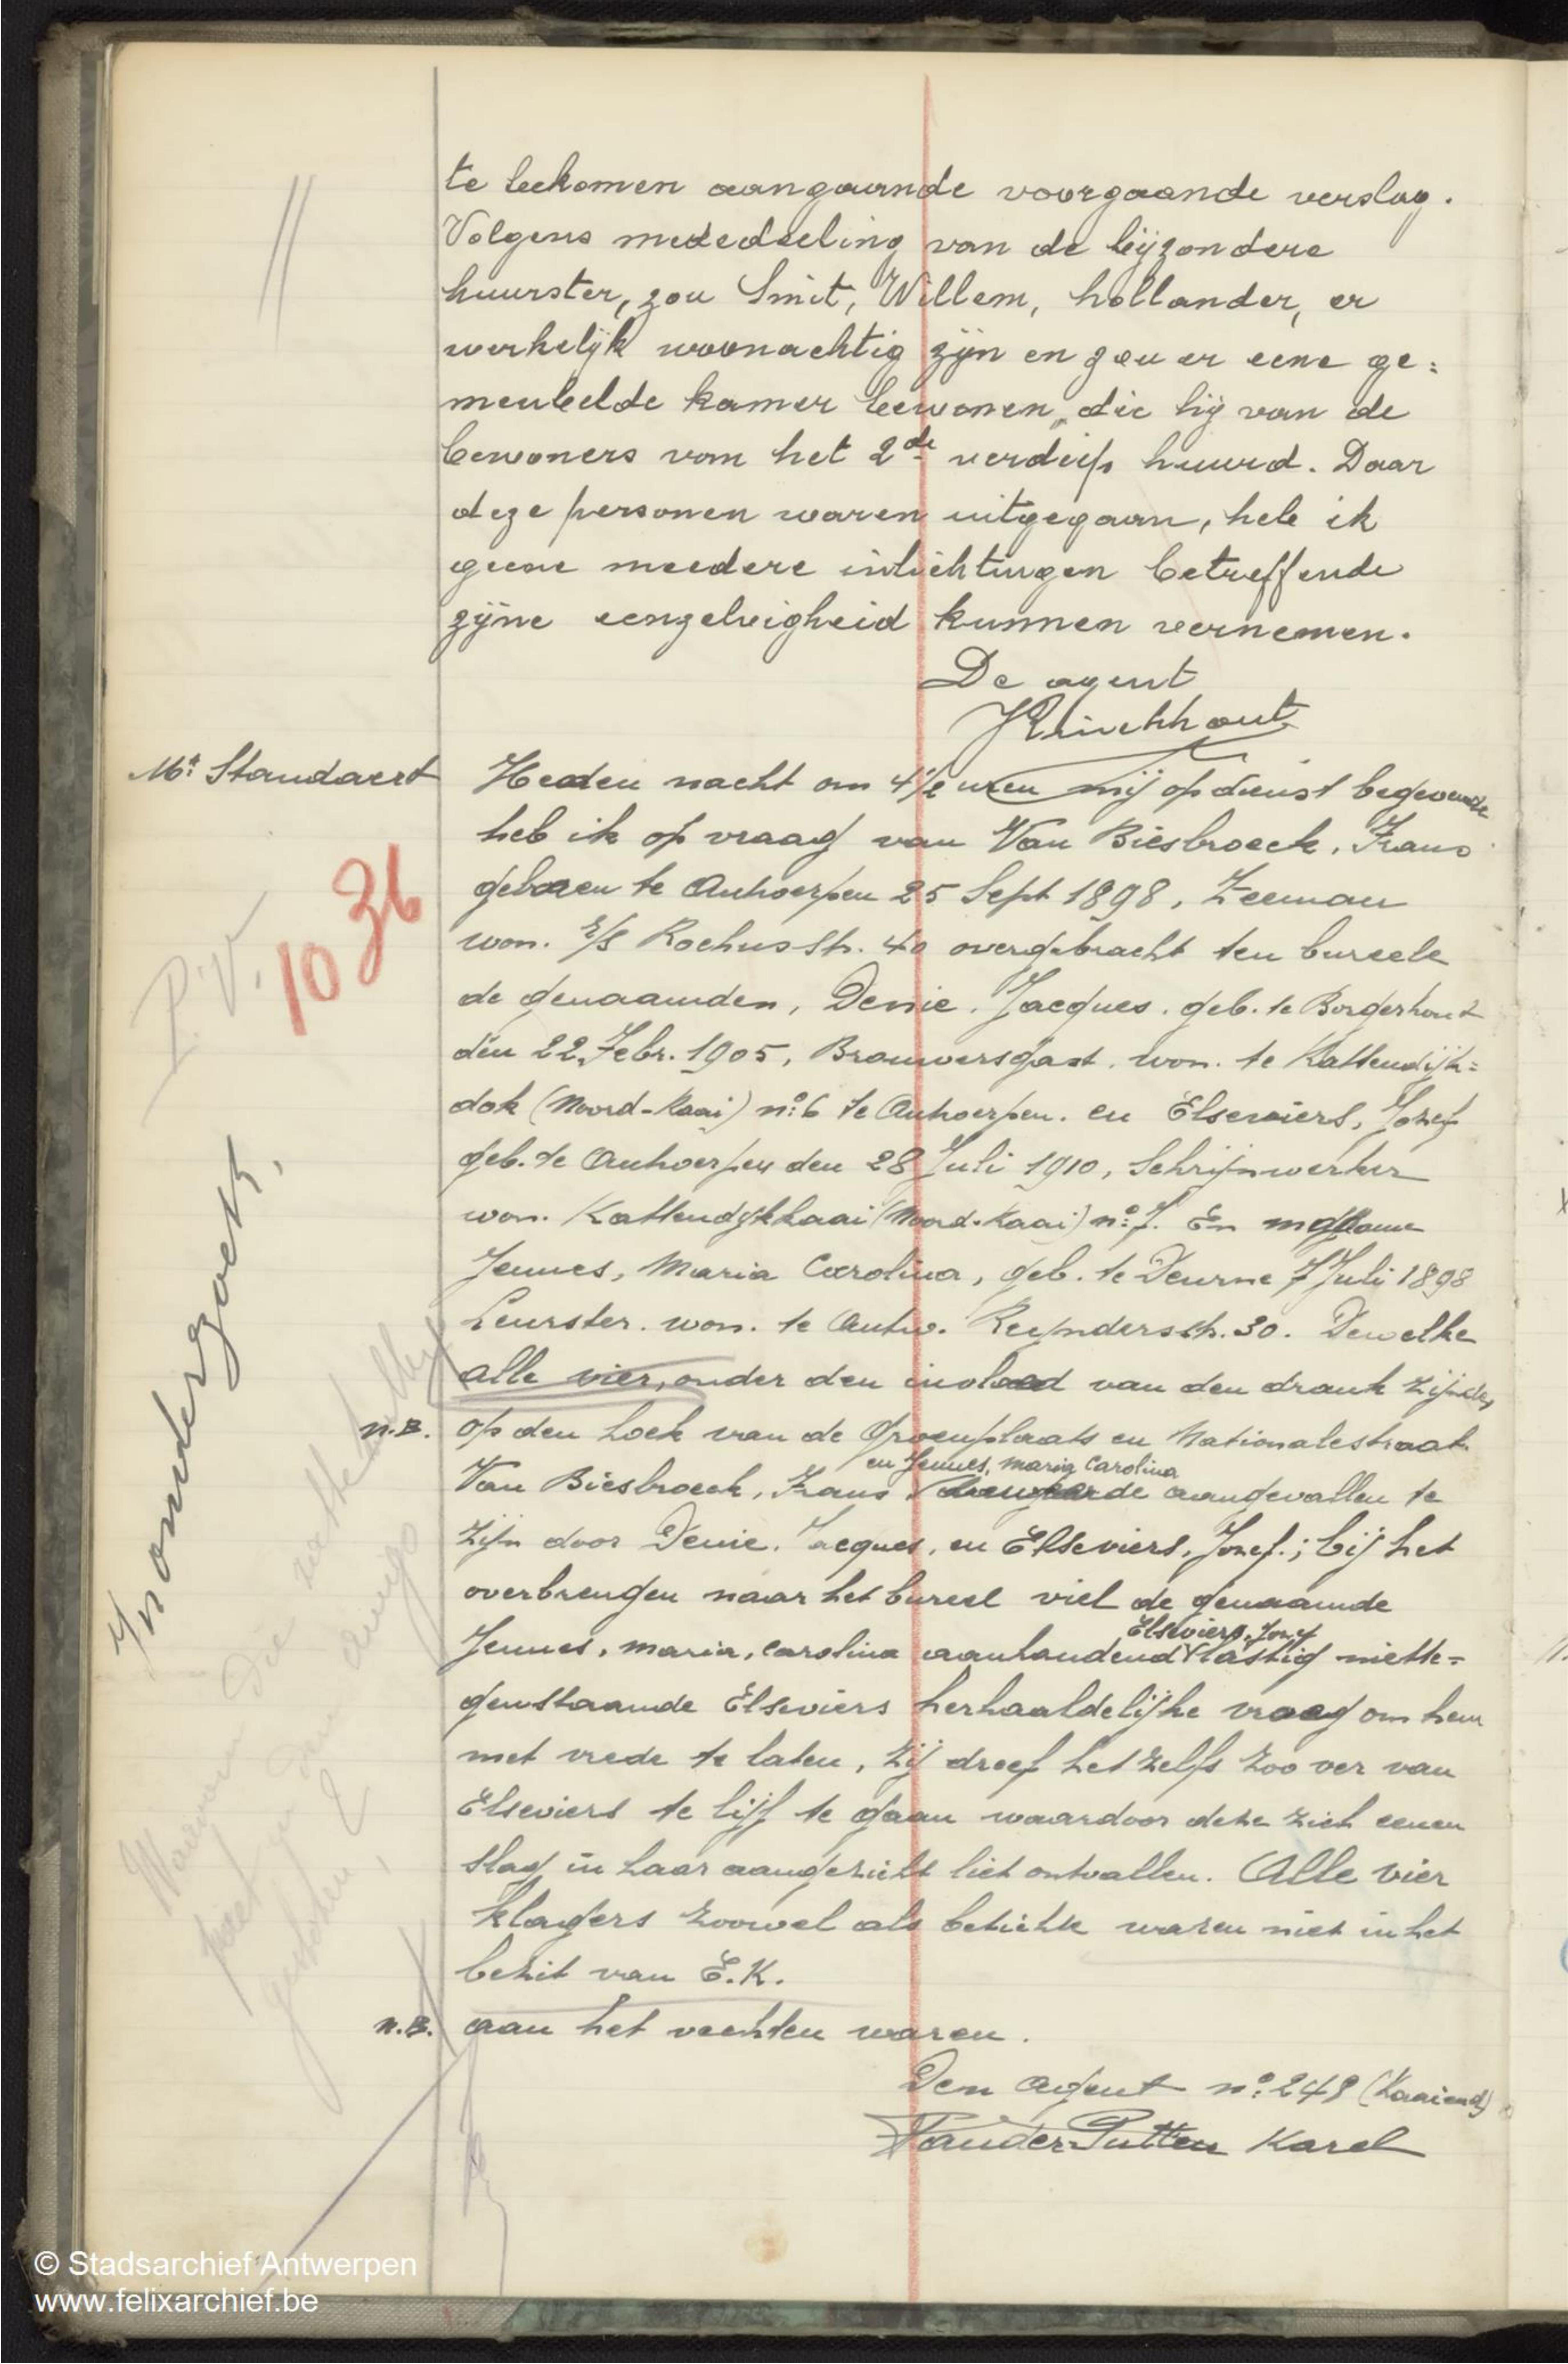 te bekomen aangaande voorgaande verslag.
Volgens mededeeling van de bijzondere
huurster, zou Smit, Willem, hollander, er
werkelijk woonachtig zijn en zou er eene ge=
meubelde kamer bewonen, die hij van de
bewoners van het 2de verdiep huurd. Daar
deze personen waren uitgegaan, heb ik
geene meedere inlichtingen betreffende
zijne eenzelvigheid kunnen vernemen.
De agent
Mr Standaert
Heden nacht om 4 1/2 uren mij op dienst begevende
heb ik op vraag van Van Biesbroeck, Frans
geboren te Antwerpen 25 Sept 1898, Zeeman
won. Rochusstr. 40 overgebracht ten bureele
P.V.
1036
de genaamden, Denie, Jacques, geb. te Borgerhout
den 22 Febr. 1905, Brouwersgast, won. te Kattendijk=
dok (Noord-Kaai) no 6 te Antwerpen. en Elseviers, Jozef
geb. te Antwerpen den 28 Juli 1910, Schrijnwerker
won. Kattendijkkaai (Noord-Kaai) no 7. En
Jennes, Maria Carolina, geb. te Deurne 7 Juli 1898
Leurster. won. te Antw. Reyndersstr. 30. Dewelke
alle vier, onder den invloed van den drank zijnde,
n.B.
op den hoek van de Groenplaats en Nationalestraat
en Jennes, Maria Carolina
Van Biesbroeck, Frans beweerde aangevallen te
zijn door Denie, Jacques, en Elseviers, Jozef.; bij het
overbrengen naar het bureel viel de genaamde
Elseviers, Jozef
Jennes, Maria, Carolina aanhoudend lastig niette=
genstaande Elseviers herhaaldelijke vraag om hem
met vrede te laten, zij dreef het zelfs zoo ver van
Elseviers te lijf te gaan waardoor deze zich eenen
slag in haar aangezicht liet ontvallen. Alle vier
klagers zoowel als betichte waren niet in het
bezit van E.K.
n.B.
aan het vechten waren.
Den Agent no 249
VanderPutten Karel
In onderzoek,
© Stadsarchief Antwerpen
www.felixarchief.be